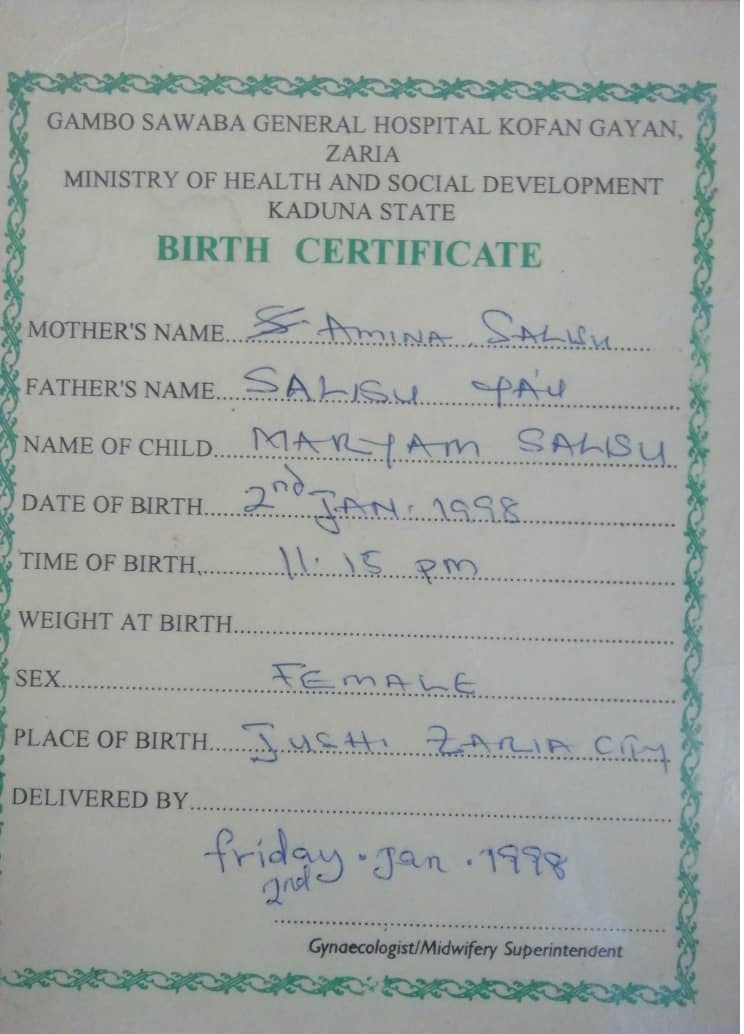 GAMBO SAWABA GENERAL HOSPITAL KOFAN GAYAN,
ZARIA
MINISTRY OF HEALTH AND SOCIAL DEVELOPMENT
KADUNA STATE
BIRTH CERTIFICATE
MOTHER'S NAME... AMINA SALISU
FATHER'S NAME... SALISU YA'U
NAME OF CHILD... MARYAM SALISU
DATE OF BIRTH... 2nd JAN. 1998
TIME OF BIRTH... 11.15 pm
WEIGHT AT BIRTH...
SEX... FEMALE
PLACE OF BIRTH... JUSHI ZARIA CITY
DELIVERED BY...
friday . Jan . 1998
2nd
Gynaecologist/Midwifery Superintendent